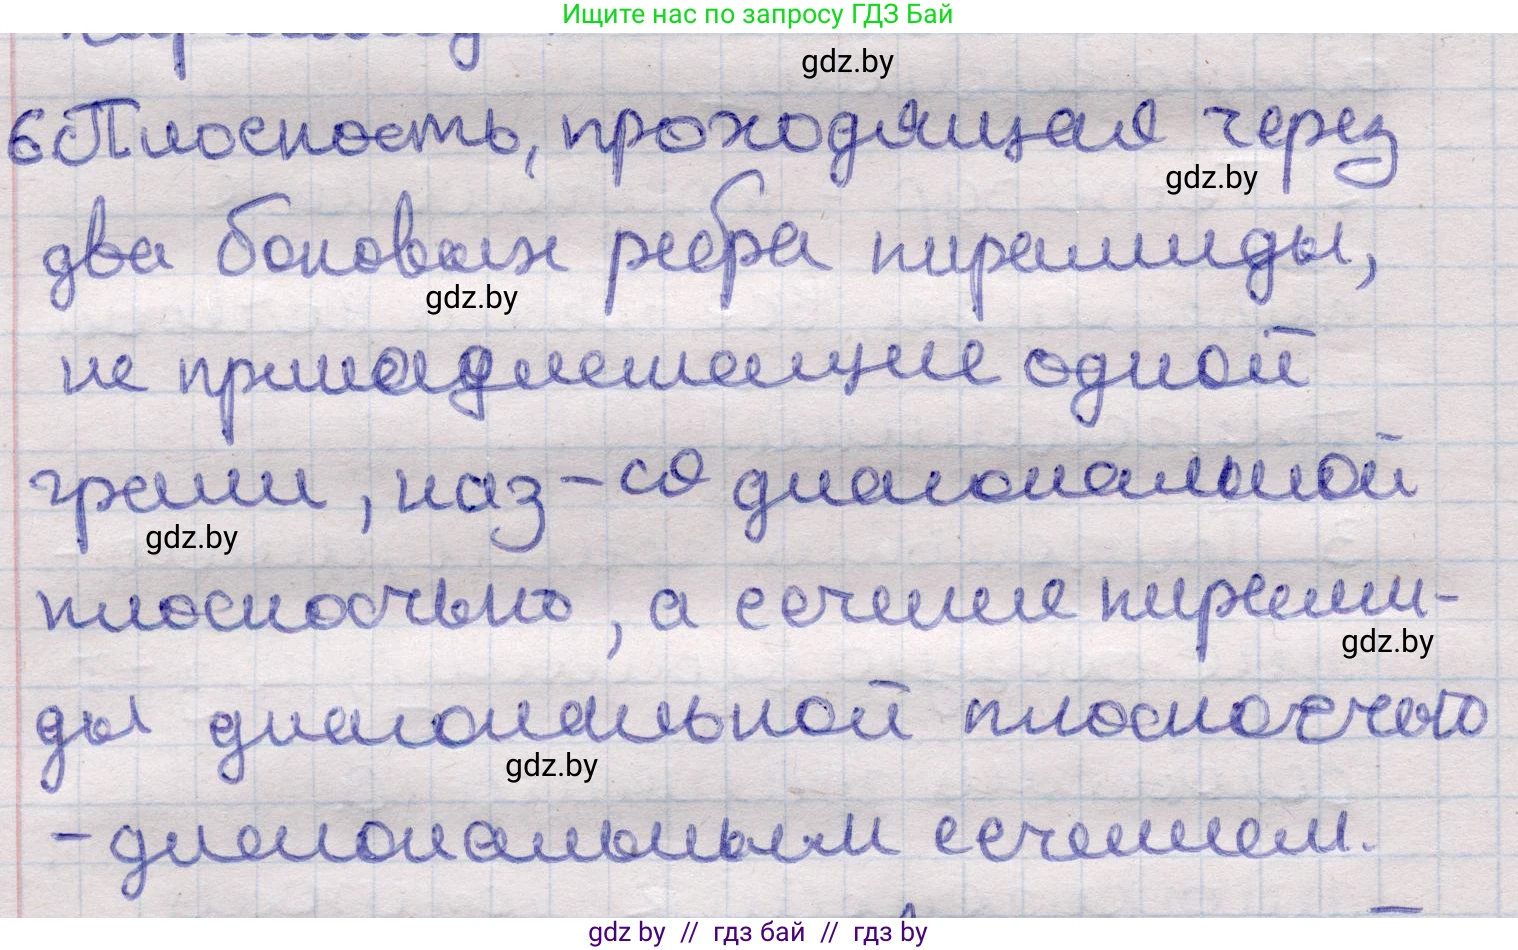 Ищите нас по запросу ГДЗ Бай
gdz.by
6 Плоскость, проходящая через
gdz.by
два боковых ребра пирамиды,
gdz.by
не принадлежащие одной
грани, наз-ся диагональной
gdz.by
плоскостью, а сечение пирами-
gdz.by
ды диагональной плоскостью
gdz.by
- диагональным сечением.
gdz by // гдз бай // гдз by